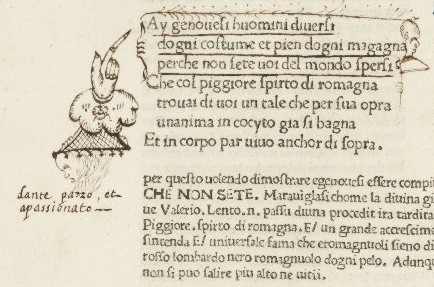 Ay genouesi huomini diuersi
dogni costume et pien dogni magagna
perche non sete uoi del mondo spersi
Che col piggiore spirto di romagna
trouai di uoi un tale che per sua opra
unanima in cocyto gia si bagna
Et in corpo par uiuo anchor di sopra.
dante pazzo, et
apassionato
per questo uolendo dimostrare egenouesi essere compiu
CHE NON SETE. Marauiglasi chome la diuina gi
ue Valerio. Lento.n. passu diuina procedit ira tardita
Piggiore. spirto di romagna. E/ un grande accrescime
sintenda E/ uniuersale fama che eromagnuoli sieno di
rosso lombardo nero romagnuolo dogni pelo. Adunqu
non si puo salire piu alto ne uitii.